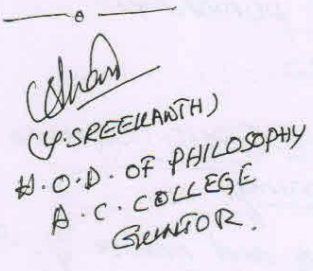 (Y.SREEKANTH)
H.O.D. OF PHILOSOPHY
A.C. COLLEGE
GUNTOR.